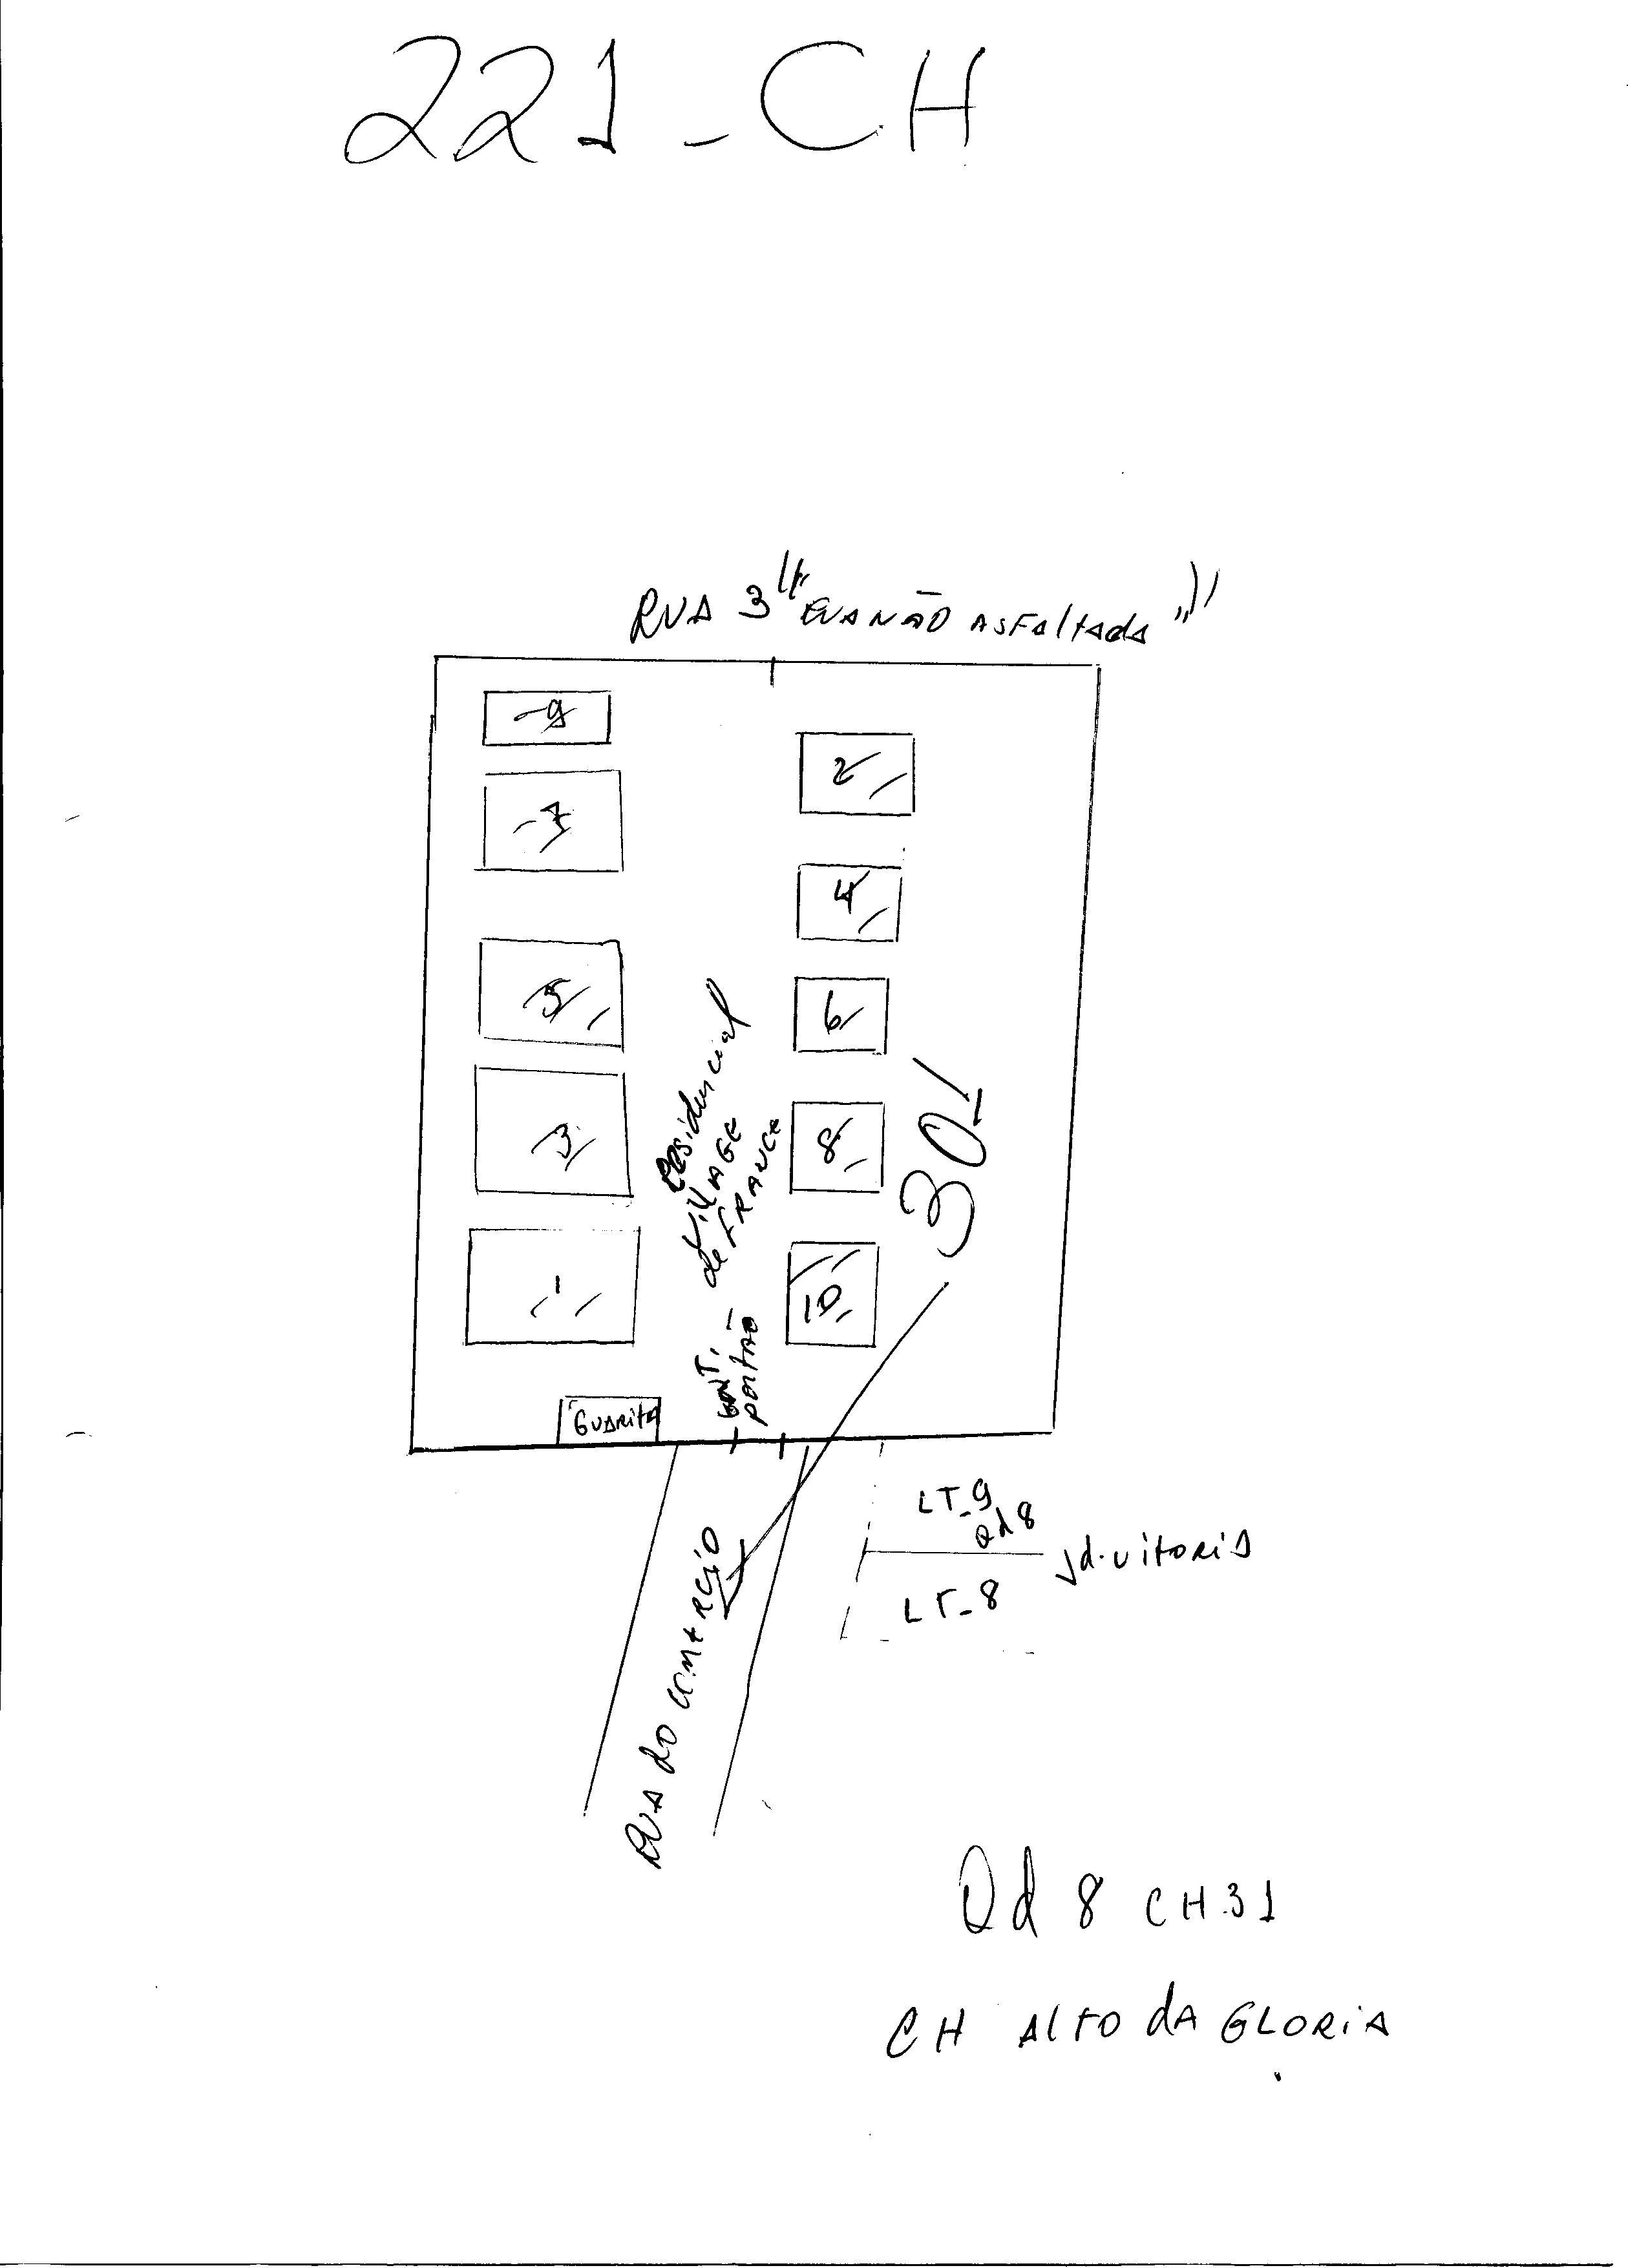 221-CH
RUA 3 "RUA NÃO ASFAltAdA"
9
2
7
4
5
6
3
8
1
10
Residencial
VillAGE
de FRANCE
301
ENT.
portão
GUARitA
RUA do comercio
LT-9
Qd 8
Jd. vitoria
LT-8
Qd 8 CH 31
CH Alto dA GLORiA